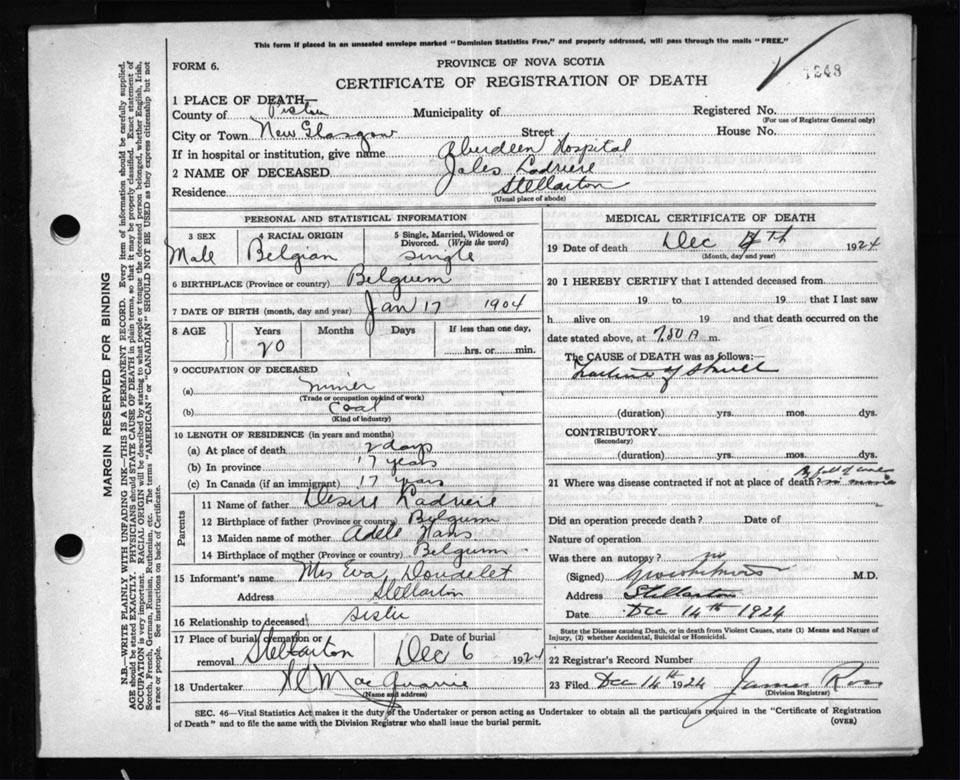 This form if placed in an unsealed envelope marked "Dominion Statistics Free," and properly addressed, will pass through the mails "FREE."
FORM 6.
PROVINCE OF NOVA SCOTIA
CERTIFICATE OF REGISTRATION OF DEATH
1248
1 PLACE OF DEATH
County of Pictou Municipality of Registered No.
(For use of Registrar General only)
City or Town New Glasgow Street House No.
If in hospital or institution, give name Aberdeen Hospital
2 NAME OF DECEASED Jules Ladriere
Residence Stellarton
(Usual place of abode)
PERSONAL AND STATISTICAL INFORMATION
3 SEX Male
4 RACIAL ORIGIN Belgian
5 Single, Married, Widowed or Divorced. (Write the word) Single
6 BIRTHPLACE (Province or country) Belgium
7 DATE OF BIRTH (month, day and year) Jan 17 1904
8 AGE Years Months Days If less than one day,
20 hrs. or min.
9 OCCUPATION OF DECEASED
(a) miner
(Trade or occupation or kind of work)
(b) Coal
(Kind of industry)
10 LENGTH OF RESIDENCE (in years and months)
(a) At place of death 2 days
(b) In province 17 years
(c) In Canada (if an immigrant) 17 years
Parents
11 Name of father Desire Ladriere
12 Birthplace of father (Province or country) Belgum
13 Maiden name of mother Adele Hans
14 Birthplace of mother (Province or country) Belgum
15 Informant's name Mrs Eva Doudelet
Address Stellarton
16 Relationship to deceased sister
17 Place of burial, cremation or removal Stellarton Date of burial Dec 6 1924
18 Undertaker MacQuarrie
(Name and address)
MEDICAL CERTIFICATE OF DEATH
19 Date of death Dec 4th 1924
(Month, day and year)
20 I HEREBY CERTIFY that I attended deceased from
19 to 19 that I last saw
h alive on 19 and that death occurred on the
date stated above, at 7.50 A m.
The CAUSE of DEATH was as follows:—
Fracture of Skull
(duration) yrs. mos. dys.
CONTRIBUTORY
(Secondary)
(duration) yrs. mos. dys.
By fall of coal
21 Where was disease contracted if not at place of death? in mine
Did an operation precede death? Date of
Nature of operation
Was there an autopsy? no
(Signed) M.D.
Address Stellarton
Date Dec 14th 1924
State the Disease causing Death, or in death from Violent Causes, state (1) Means and Nature of Injury, (2) whether Accidental, Suicidal or Homicidal.
22 Registrar's Record Number
23 Filed Dec 14th 1924 James Ross
(Division Registrar)
SEC. 46—Vital Statistics Act makes it the duty of the Undertaker or person acting as Undertaker to obtain all the particulars required in the "Certificate of Registration
of Death" and to file the same with the Division Registrar who shall issue the burial permit.
(OVER)
MARGIN RESERVED FOR BINDING
N.B.—WRITE PLAINLY WITH UNFADING INK—THIS IS A PERMANENT RECORD. Every item of information should be carefully supplied.
AGE should be stated EXACTLY. PHYSICIANS should STATE CAUSE OF DEATH in plain terms, so that it may be properly classified. Exact statement of
OCCUPATION is very important. RACIAL ORIGIN will be described by stating to what people or tongue the deceased person belonged, whether English, Irish,
Scotch, French, German, Russian, Ruthenian, etc. The terms "AMERICAN" or "CANADIAN" SHOULD NOT BE USED as they express citizenship but not
a race or people. See instructions on back of Certificate.